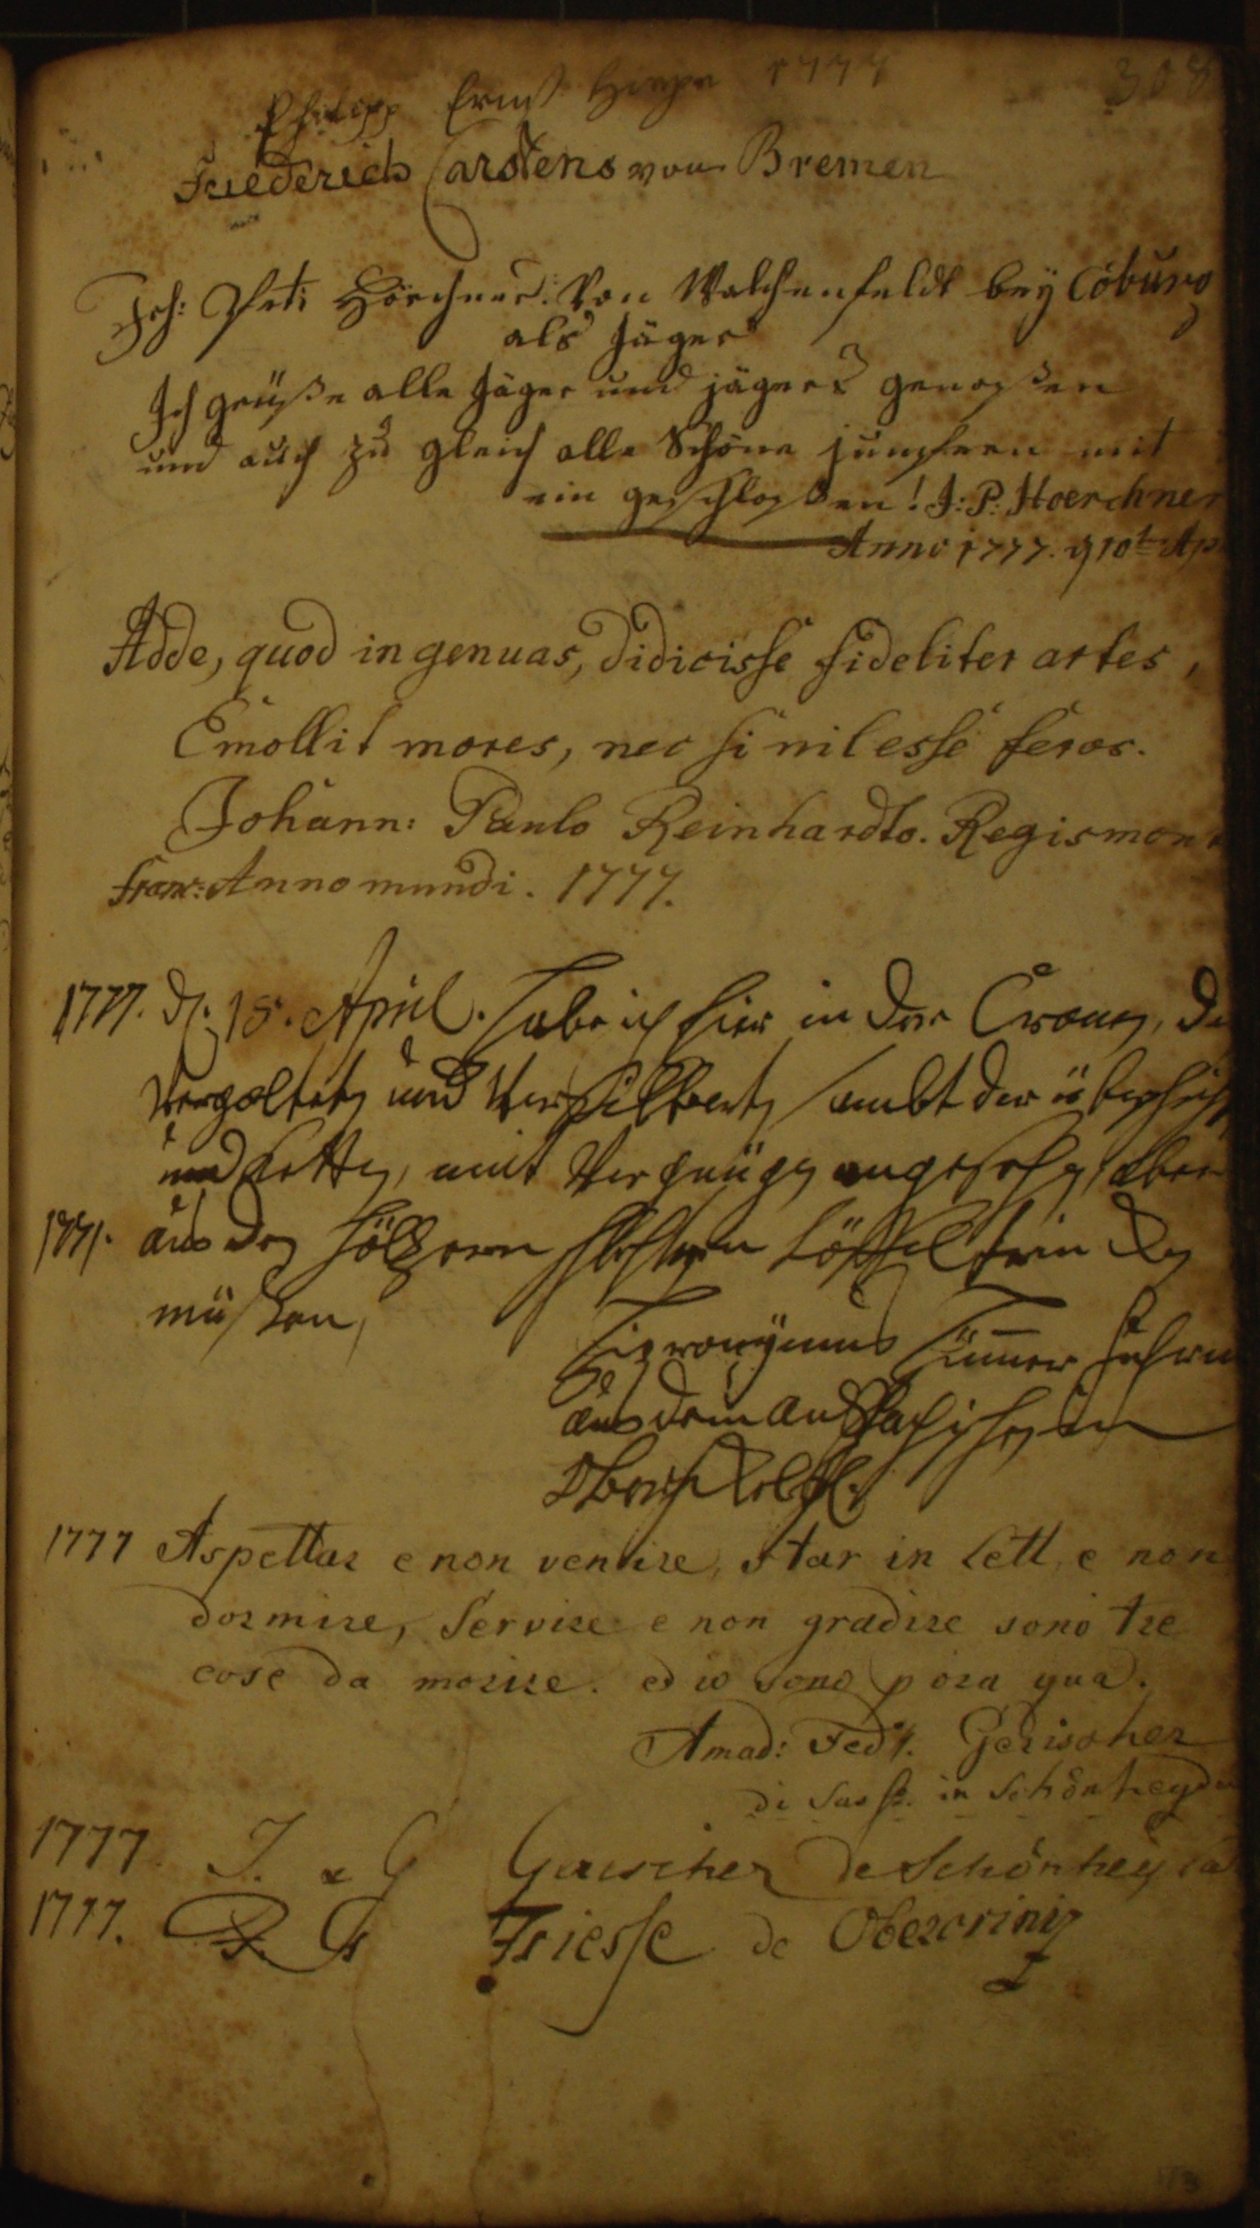 308
Philipp Ernst 1777
Friederich Carstens von Bremen
Joh: Hörchner. Von Walchenfeldt bey Cobúrg
als Jäger
Ich grüße alle Jäger und jägers genoßen
und auch zu gleich alle Schöne jungfern mit
ein geschloßen! J: P: Hoerchner
Anno 1777. d 10t Ap
Adde, quod ingenuas, didicisse fideliter artes,
Emollit mores, nec si nil esse feros.
Johann: Paulo Reinhardto. Regismont
Franc: Anno mundi. 1777.
1777. d. 18. April. habe ich hier in der Cronen, de
vergoldten und versilberten sambt der
und Ketten, mit Vergnügen angesehen, aber
1777. aus den höltzern Löffel trincken
müssen,
Hieronymus
aus dem
1777 Aspettar e non venire, star in lett, e non
dormire, servire e non gradire sono tre
cose da morire. ed io sono pora qua.
Amad: Fed. Gerischer
di Sass. in Schönheyde
1777. J. G Gerischer de Schönheyda
1777. G Friesse de Obercriniz